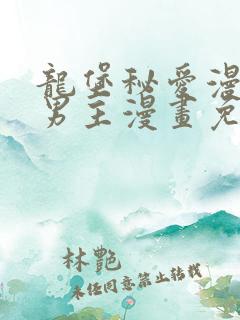 龍堡秘愛漫
男主漫畫免
林艷
未任同意禁止转载